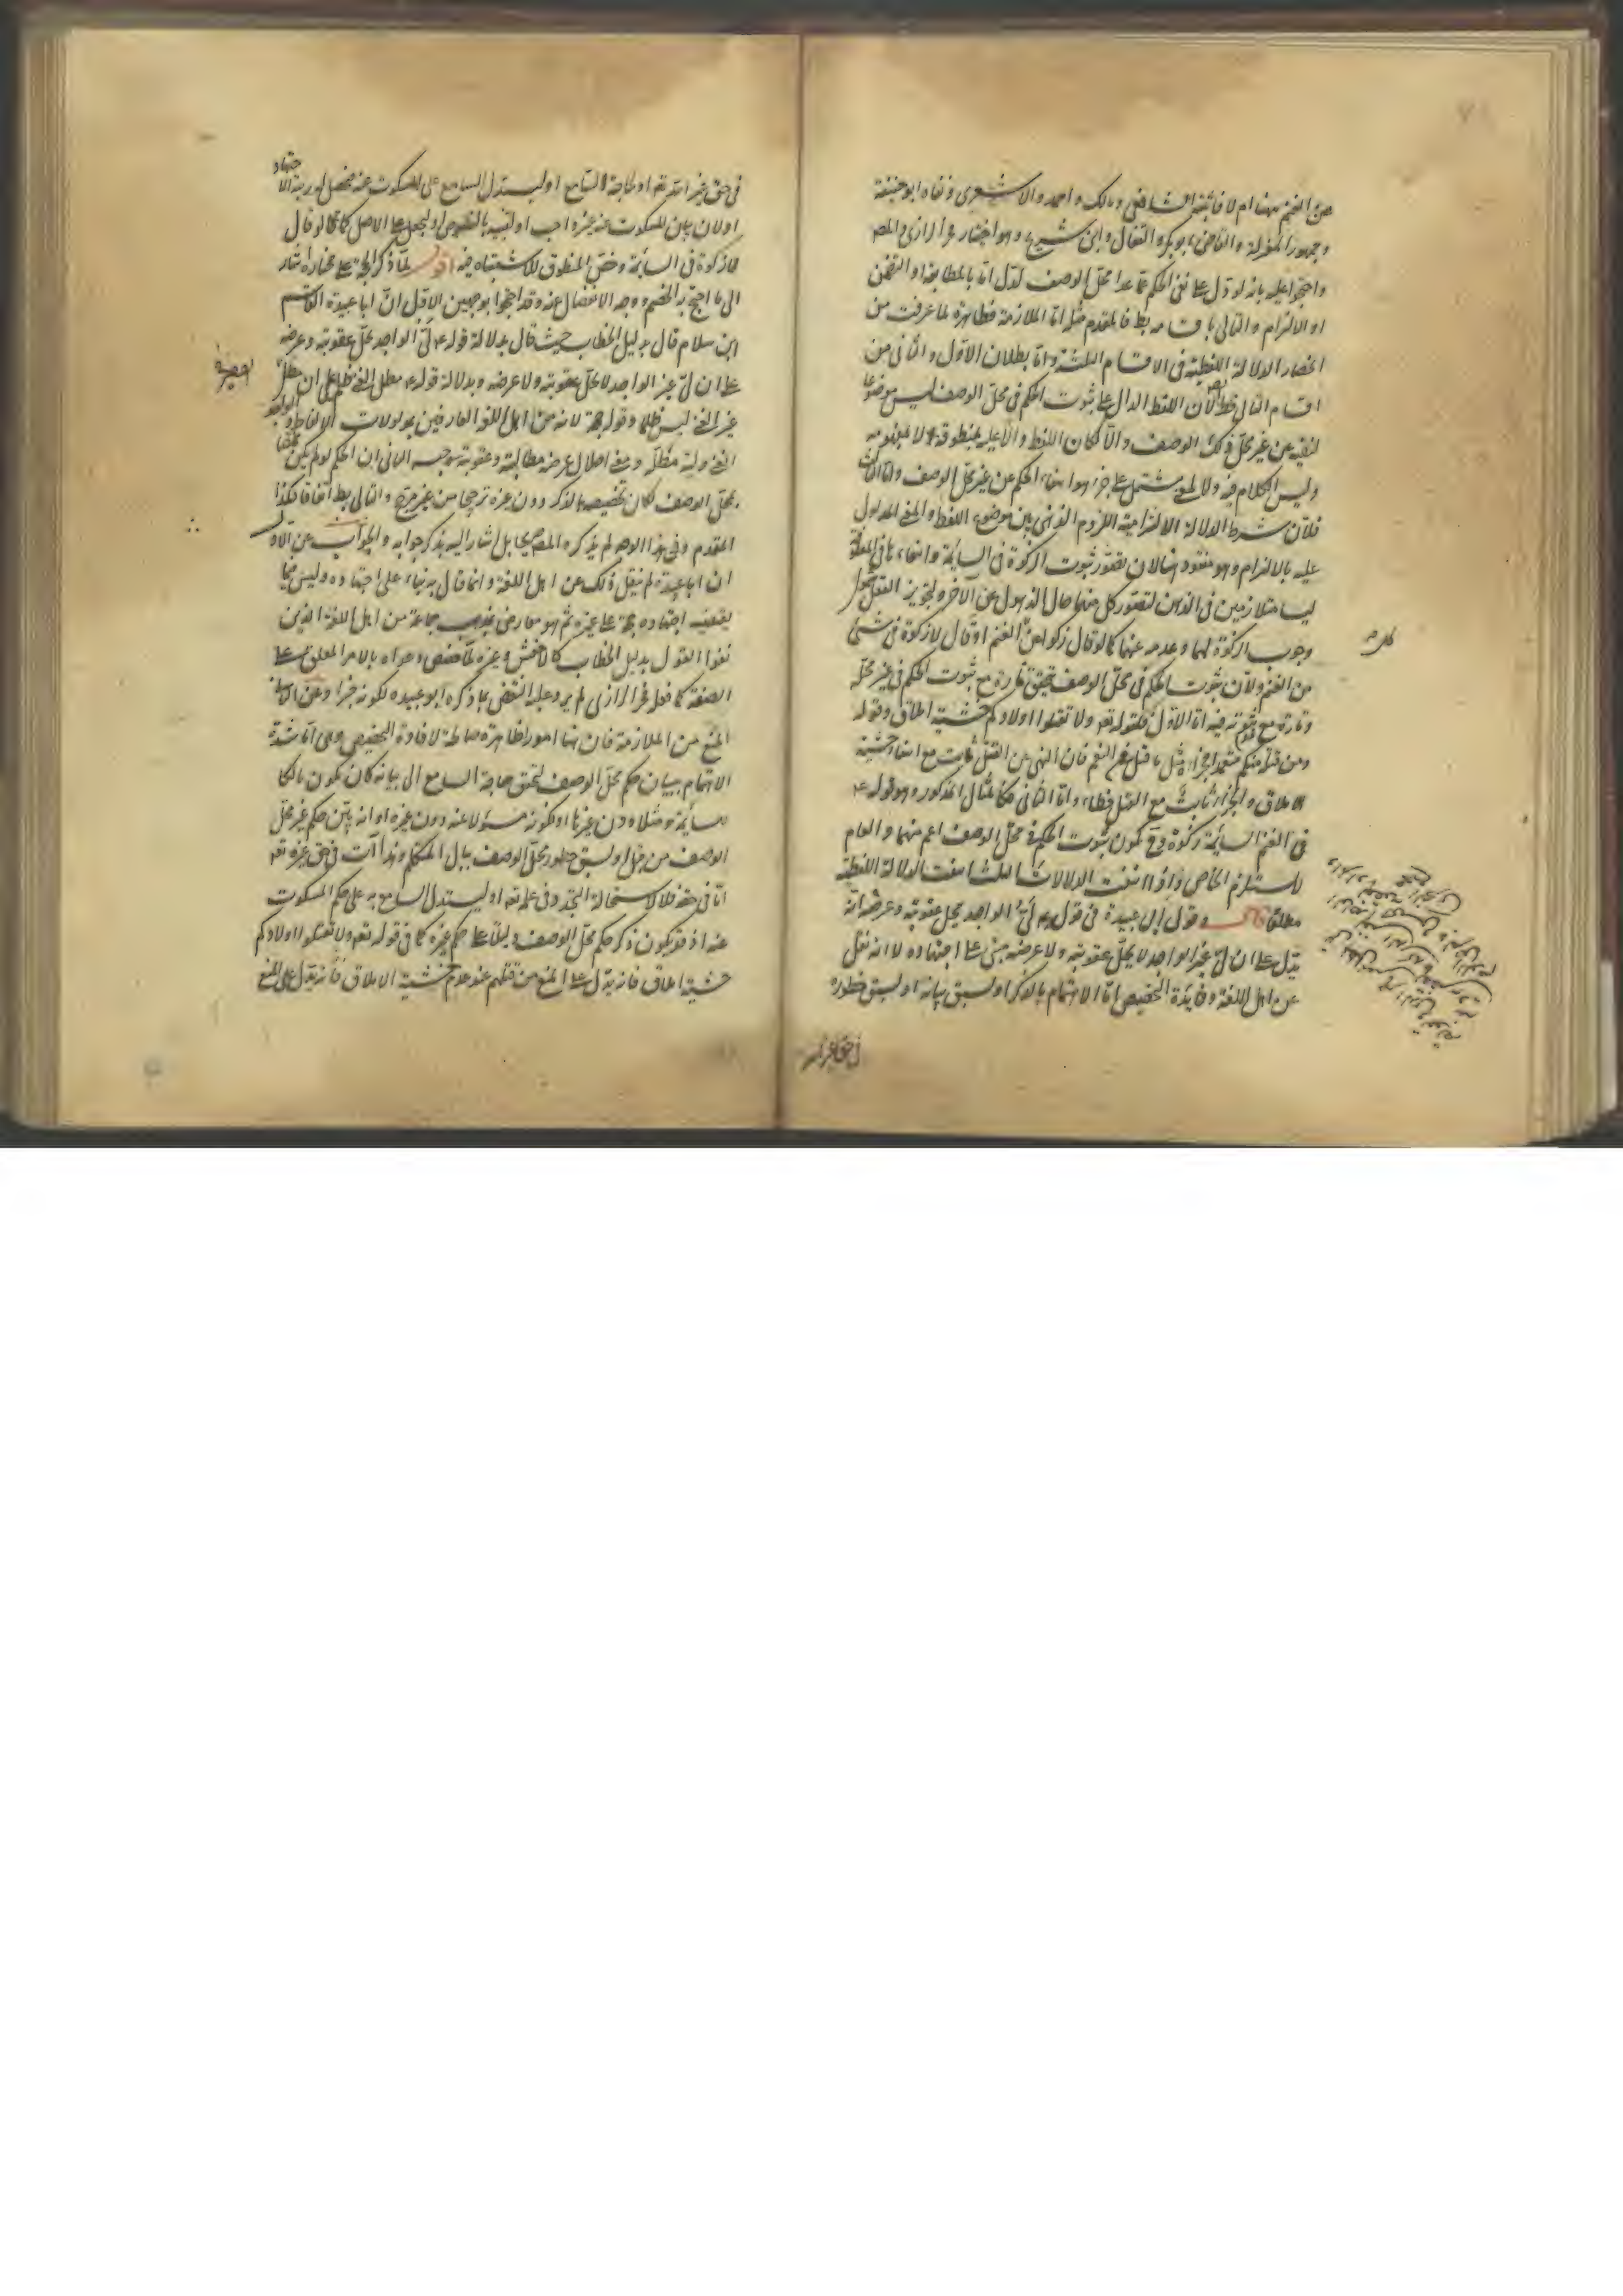 عن الغنم بهذا ام لا فاثبته الشافعي ومالك واحمد والاشعري ونفاه ابو حنيفة
وجمهور المعتزلة والقاضي ابو بكر والقفال وابن شريح وهو اختيار فخر الرازي والمص
واحتجوا عليه بانه لو دل على نفي الحكم عما عدا محل الوصف لدل اما بالمطابقة او التضمن
او الالتزام والتالي باقسامه بط فالمقدم مثله اما الملازمة فظاهرة لما عرفت من
انحصار الدلالة اللفظية في الاقسام الثلثة واما بطلان الاول والثاني من
اقسام التالي فلان اللفظ الدال على ثبوت الحكم في محل الوصف ليس موضوعا
لنفيه عن غير محل ذلك الوصف والا لكان اللفظ دالا عليه بمنطوقه لا بمفهومه
وليس الكلام فيه ولا لمعنى يشتمل على جزء هو انتفاء الحكم عن غير محل الوصف واما الثالث
فلان شرط الدلالة الالتزامية اللزوم الذهني بين موضوع اللفظ والمعنى المدلول
عليه بالالتزام وهو مفقود هنا لان تصور ثبوت الزكوة في السائمة وانتفاءها في المعلوفة
ليسا متلازمين في الذهن لتصور كل منهما حال الذهول عن الآخر ولتجويز العقل
وجوب الزكوة لهما وعدمه عنهما كما لو قال زكوا عن الغنم او قال لا زكوة في شيء
من الغنم ولان ثبوت الحكم في محل الوصف يتحقق تارة مع ثبوت الحكم في غير محله
وتارة مع عدم ثبوته فيه اما الاول فكقوله تعه ولا تقتلوا اولادكم خشية املاق وقوله
ومن قتله منكم متعمدا فجزاء مثل ما قتل من النعم فان النهي عن القتل ثابت مع انتفاء خشية
الاملاق والجزاء ثابت مع القتل خطاء واما الثاني فكالمثال المذكور وهو قوله ع
في الغنم السائمة زكوة وح يكون ثبوت الحكم في محل الوصف اعم منهما والعام
لا يستلزم الخاص واذا انتفت الدلالات الثلث انتفت الدلالة اللفظية
مطلقا قال وقول ابي عبيدة في قوله ع ليّ الواجد يحل عقوبته وعرضه انه
يدل على ان ليّ غير الواجد لا يحل عقوبته ولا عرضه مبني على اجتهاده لا انه نقل
عن اهل اللغة وفائدة التخصيص اما الاهتمام بالذكر او سبق بيانه او سبق خطوره
في حق غير الله تعه او لحاجة السامع او ليستدل السامع على المسكوت عنه فيحصل له رتبة الاجتهاد
او لان بيان المسكوت عنه غيره اجب او لتنبيه بالنصوص او ليجعل على الاصل كما لو قال
لا زكوة في السائمة وخص المنطوق للاشتباه فيه اقول لما ذكر الحجة على مختاره اشار
الى ما احتج به الخصم ووجه الانفصال عنه وقد احتجوا بوجهين الاول ان ابا عبيدة القاسم
ابن سلام قال بدليل الخطاب حيث قال بدلالة قوله ع ليّ الواجد يحل عقوبته وعرضه
على ان ليّ غير الواجد لا يحل عقوبته ولا عرضه وبدلالة قوله ع مطل الغني ظلم على ان مطل
غير الغني ليس ظلما وقوله حجة لانه من اهل اللغة العارفين بمدلولات الالفاظ والواجد
الغني وليه مطله ومعنى احلال عرضه مطالبته وعقوبته حبسه الثاني ان الحكم لو لم يكن مختصا
بمحل الوصف لكان تخصيصه بالذكر دون غيره ترجيحا من غير مرجح والتالي بط اتفاقا فكذا
المقدم وفي هذا الوجه لم يذكره المص صريحا بل اشار اليه بذكر جوابه والجواب عن الاول
ان ابا عبيدة لم ينقل ذلك عن اهل اللغة وانما قال به بناء على اجتهاده وليس مما
يقتضيه اجتهاده حجة على غيره ثم هو معارض بمذهب جماعة من اهل اللغة الذين
نفوا القول بدليل الخطاب كالاخفش وغيره لما خصص دعواه بالامر المعلق على
الصفة كما فعل فخر الرازي لم يرد عليه النقض بما ذكره ابو عبيده لكونه خبرا وعن الثاني
المنع من الملازمة فان هنا امورا ظاهرة صالحة لافادة التخصيص وهي اما شدة
الاهتمام ببيان حكم محل الوصف لتحقق حاجة السامع الى بيانه كان يكون مالكا
لسائمة مثلا دون غيرها او لكونه مسؤلا عنه دون غيره او انه بين حكم غير محل
الوصف من قبل او لسبق خطور محل الوصف ببال المتكلم وهذا آت في حق غيره تعه
اما في حقه فلا لاستحالة التجدد في علمه تعه او ليستدل السامع به على حكم المسكوت
عنه اذ قد يكون ذكر حكم محل الوصف دليلا على حكم غيره كما في قوله تعه ولا تقتلوا اولادكم
خشية املاق فانه يدل على المنع من قتلهم عند عدم خشية الاملاق فانه يدل على المنع